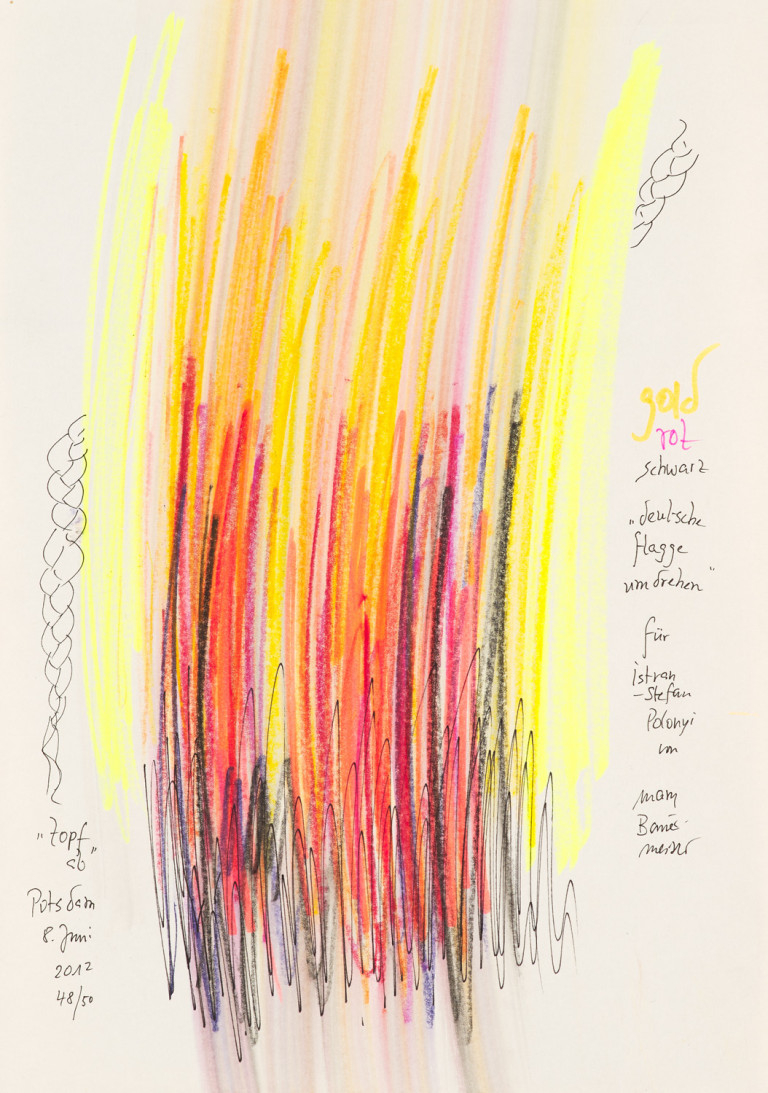 gold
rot
schwarz
„deutsche
flagge
umdrehen"
für
istvan
-Stefan
Polonyi
von
mary
Baumeister
„Zopf
ab"
Potsdam
8. Juni
2012
48/50